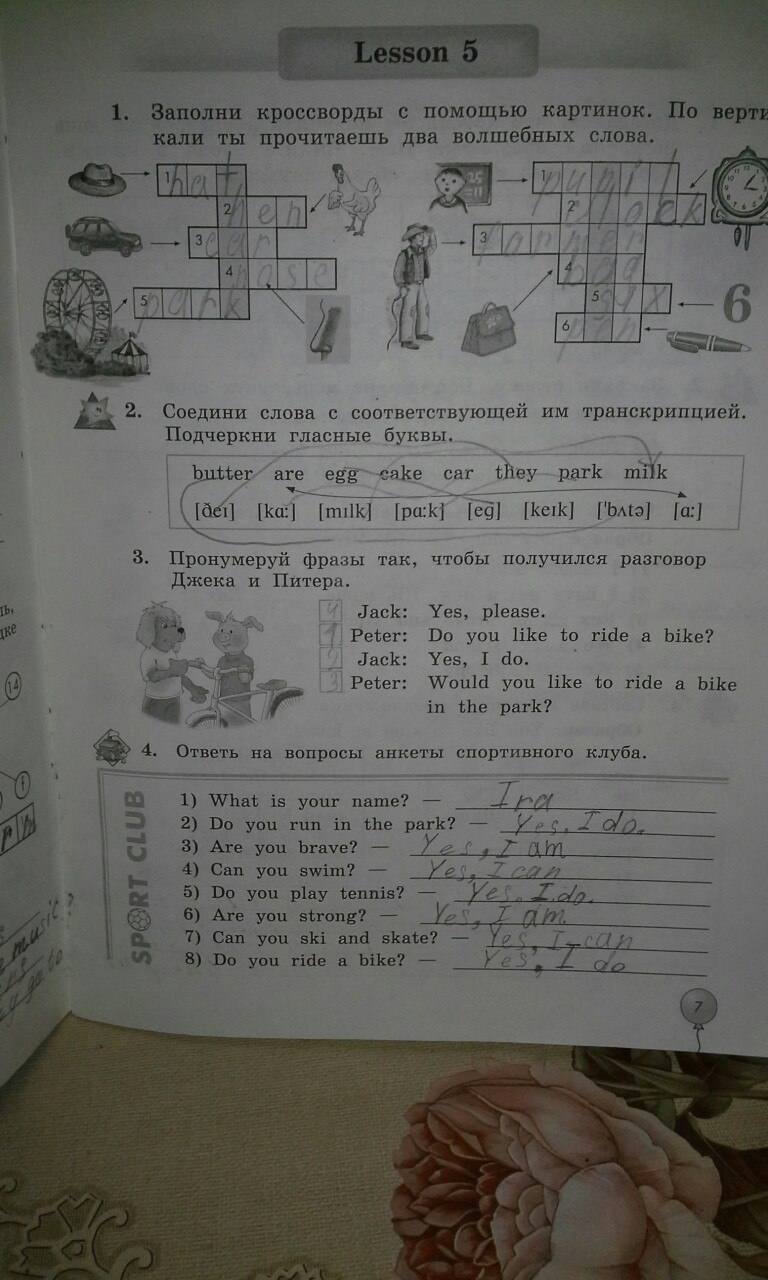 Lesson 5
1. Заполни кроссворды с помощью картинок. По верти
кали ты прочитаешь два волшебных слова.
1 hat
2 hen
3 car
4 nose
5 park
1 pupil
2 clock
3 farmer
4 bag
5 six
6 pen
25
6
2. Соедини слова с соответствующей им транскрипцией.
Подчеркни гласные буквы.
butter are egg cake car they park milk
[ðeɪ] [kɑ:] [mɪlk] [pɑ:k] [eg] [keɪk] ['bʌtə] [ɑ:]
3. Пронумеруй фразы так, чтобы получился разговор
Джека и Питера.
4 Jack: Yes, please.
1 Peter: Do you like to ride a bike?
2 Jack: Yes, I do.
3 Peter: Would you like to ride a bike
in the park?
4. Ответь на вопросы анкеты спортивного клуба.
SPORT CLUB
1) What is your name? — Ira
2) Do you run in the park? — Yes, I do.
3) Are you brave? — Yes, I am
4) Can you swim? — Yes, I can
5) Do you play tennis? — Yes, I do.
6) Are you strong? — Yes, I am.
7) Can you ski and skate? — Yes, I can
8) Do you ride a bike? — Yes, I do
7
14
music?
go to